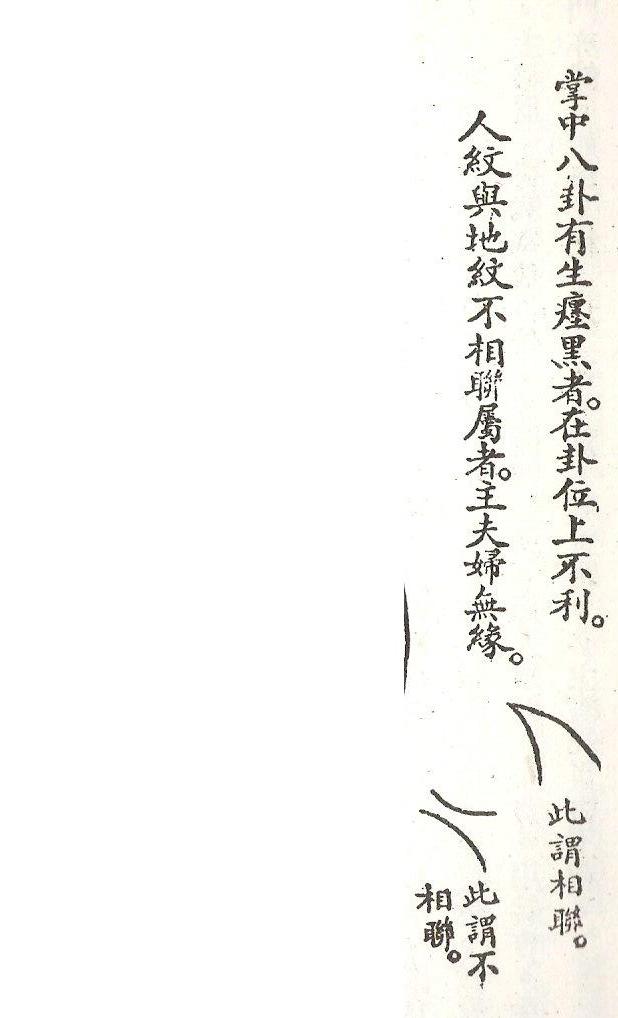 掌中八卦有生瘽黑者。在卦位上不利。
人紋與地紋不相聯屬者。主夫婦無緣。
此謂相聯。
此謂不
相聯。